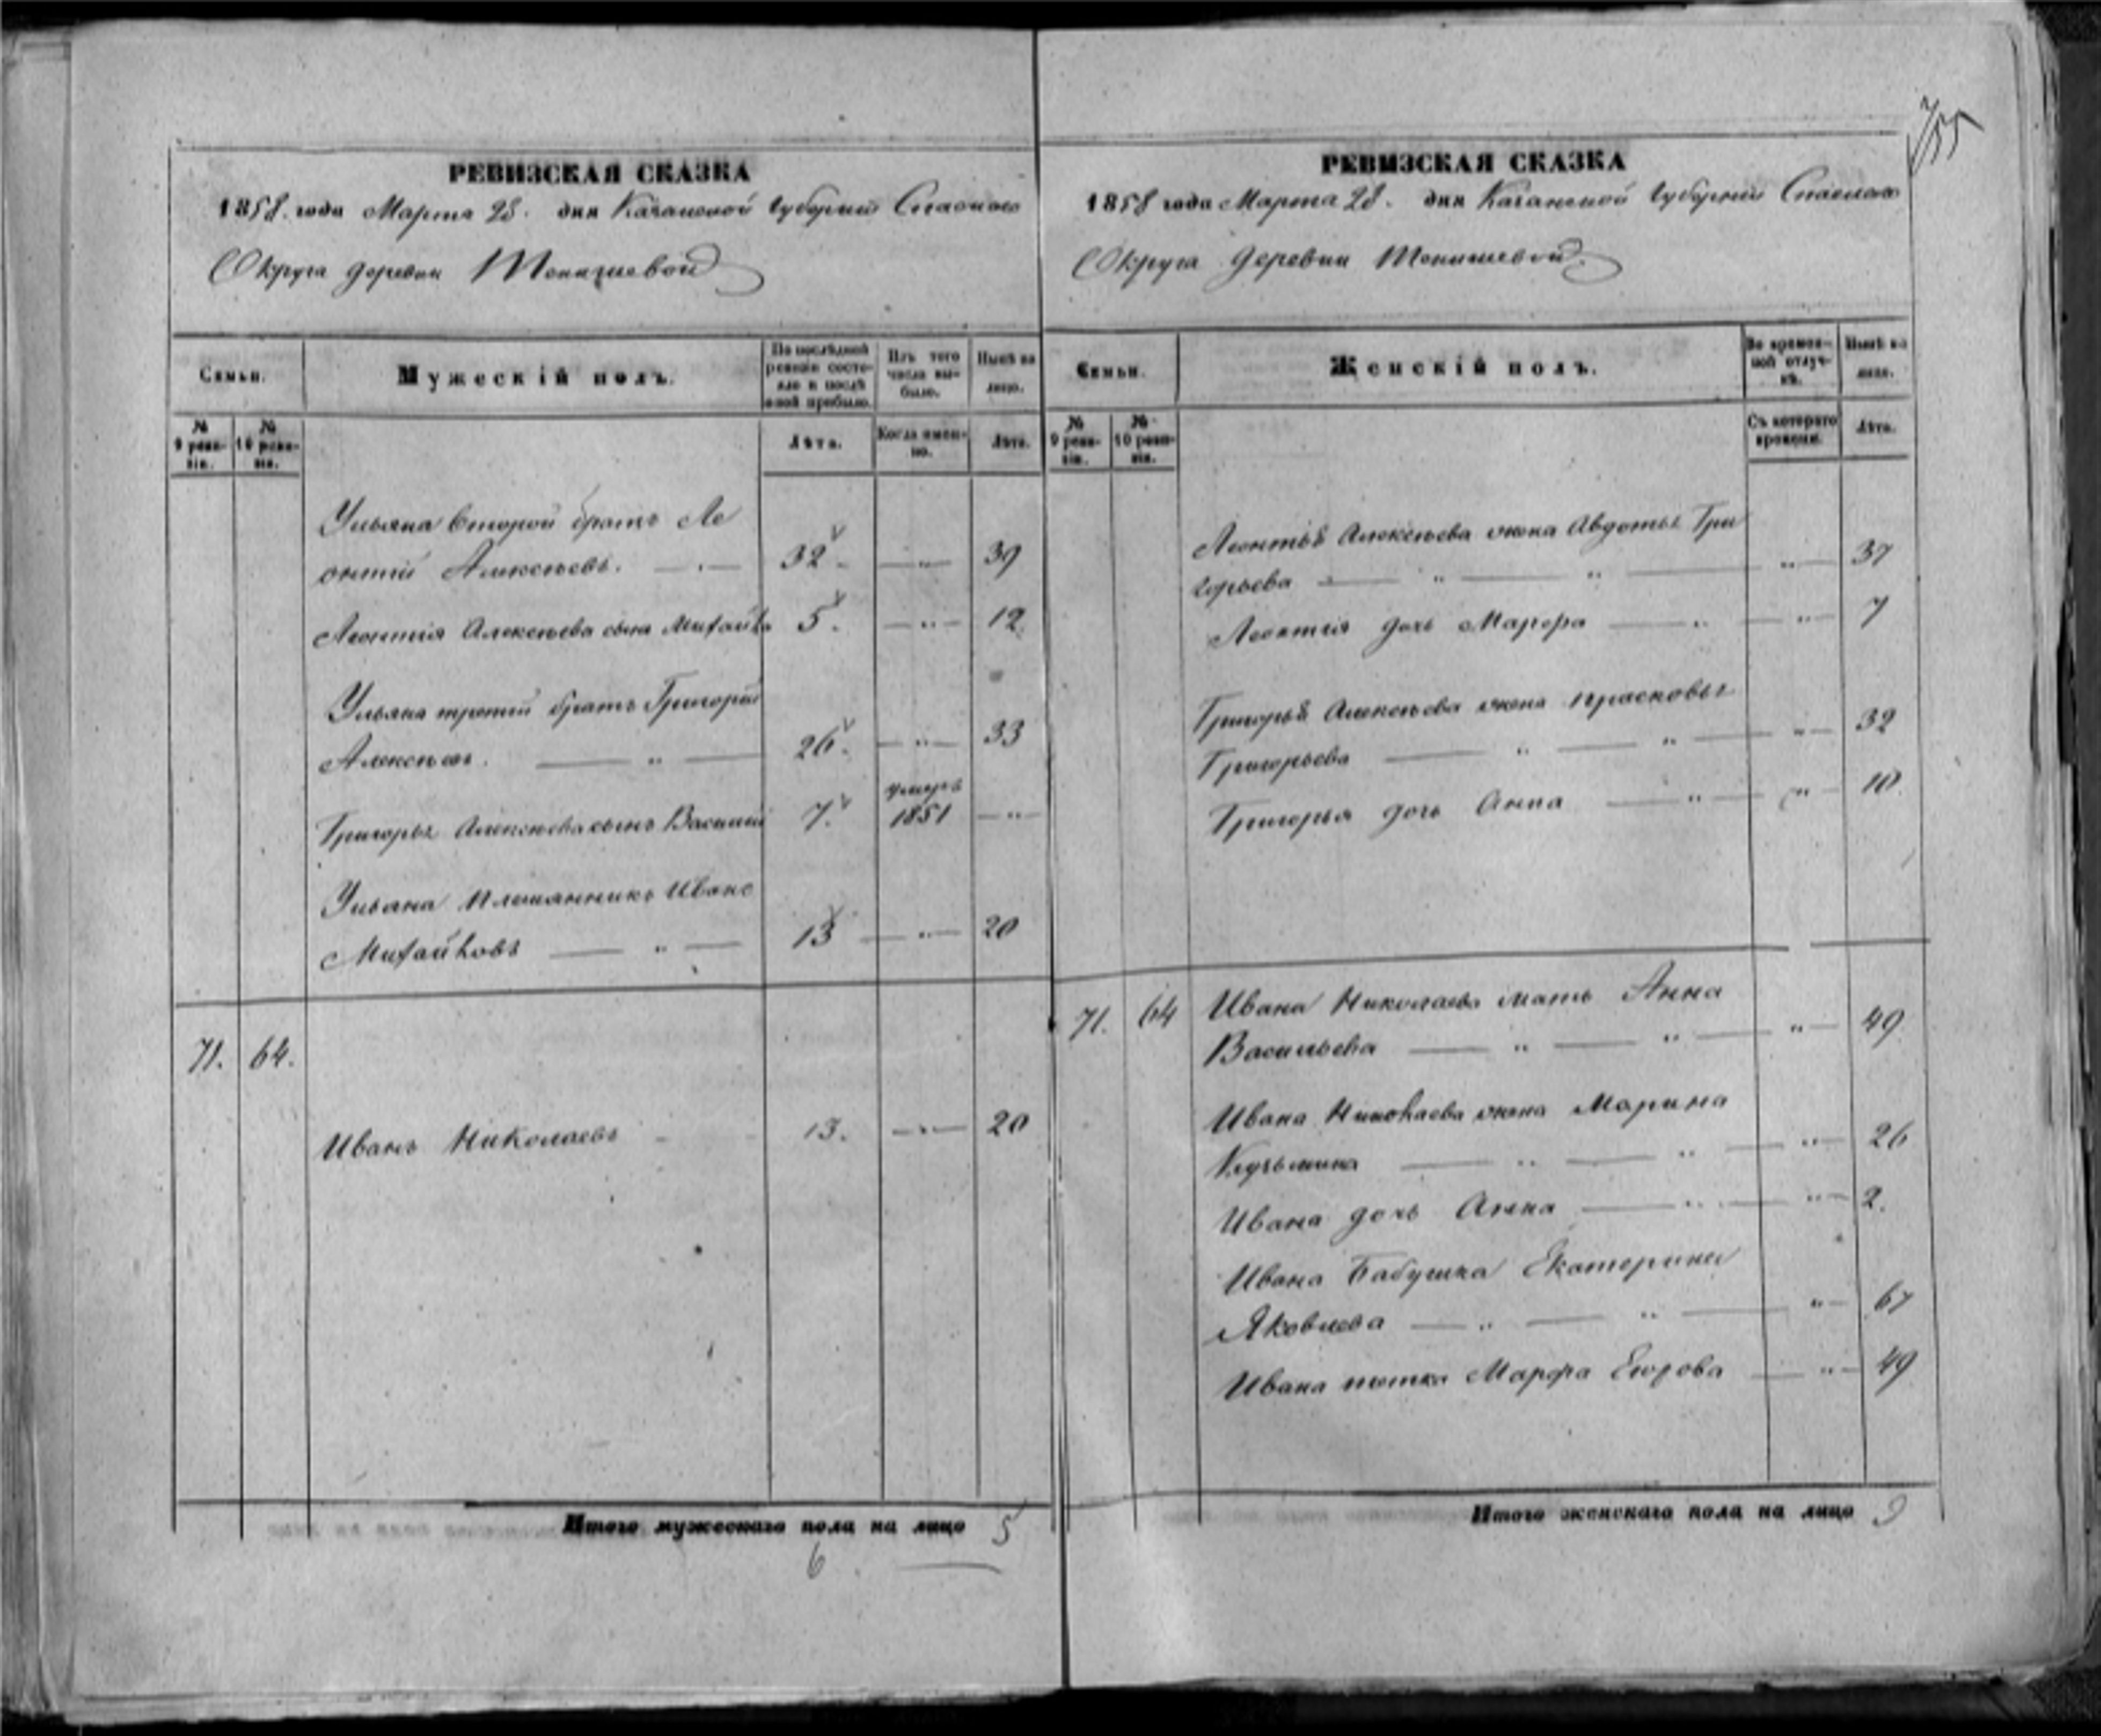 755
РЕВИЗСКАЯ СКАЗКА
1858. года Марта 28. дня Казанской губернии Спаского
Округа деревни
Семьи.
Мужескій полъ.
По послѣдней ревизіи состояло и послѣ оной прибыло.
Изъ того числа выбыло.
Нынѣ на лицо.
№ 9 ревизіи.
№ 10 ревизіи.
Лѣта.
Когда именно.
Лѣта.
Ульяна второй братъ Ле
онтій Алексѣевъ. 32. 39
Леонтія Алексѣева сынъ Михайла 5. 12
Ульяна третій братъ Григорій
Алексѣевъ. 26. 33
Григорья Алексѣева сынъ Василий 7. умеръ 1851
Ульяна племянникъ Иванъ
Михайловъ 13 20
71. 64.
Иванъ Николаевъ 13. 20
Итого мужескаго пола на лицо 5
6
РЕВИЗСКАЯ СКАЗКА
1858 года Марта 28. дня Казанской губернии Спаскаго
Округа деревни
Семьи.
Женскій полъ.
Во временной отлучкѣ.
Нынѣ на лицо.
№ 9 ревизіи.
№ 10 ревизіи.
Съ котораго времени.
Лѣта.
Леонтья Алексѣева жена Авдотья Гри
горьева 37
Леонтія дочь Марфа 7
Григорья Алексѣева жена Прасковья
Григорьева 32
Григорья дочь Анна 10.
71. 64 Ивана Николаева мать Анна
Васильева 49
Ивана Николаева жена Марина
Кузьмина 26
Ивана дочь Анна 2.
Ивана Бабушка Екатерина
Яковлева 67
Ивана тетка Марфа Егорова 49
Итого женскаго пола на лицо 9